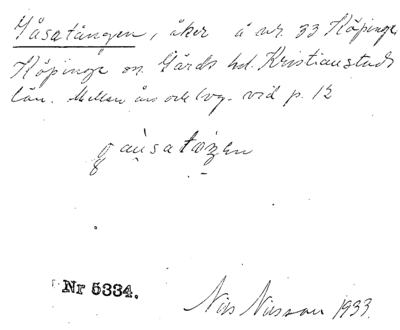 Gåsatången, åker å nr. 33 Köpinge
Köpinge sn. Gärds hd. Kristianstads
län. Mellan åns och lvg. vid p. 12
gau̇satɷŋen
Nr 5334.
Nils Nilsson 1933.